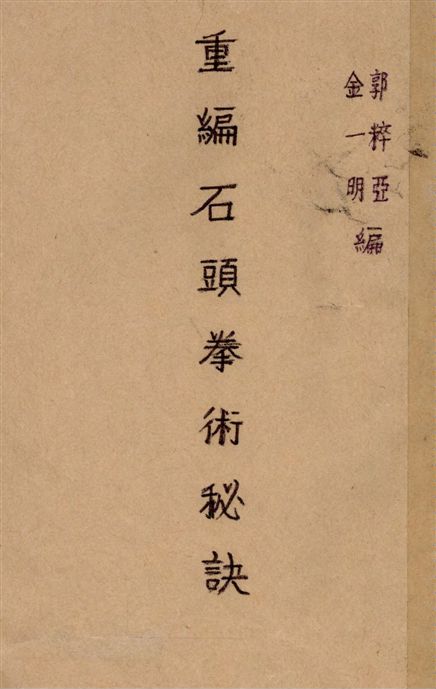 郭粹亞
金一明編
重編石頭拳術秘訣